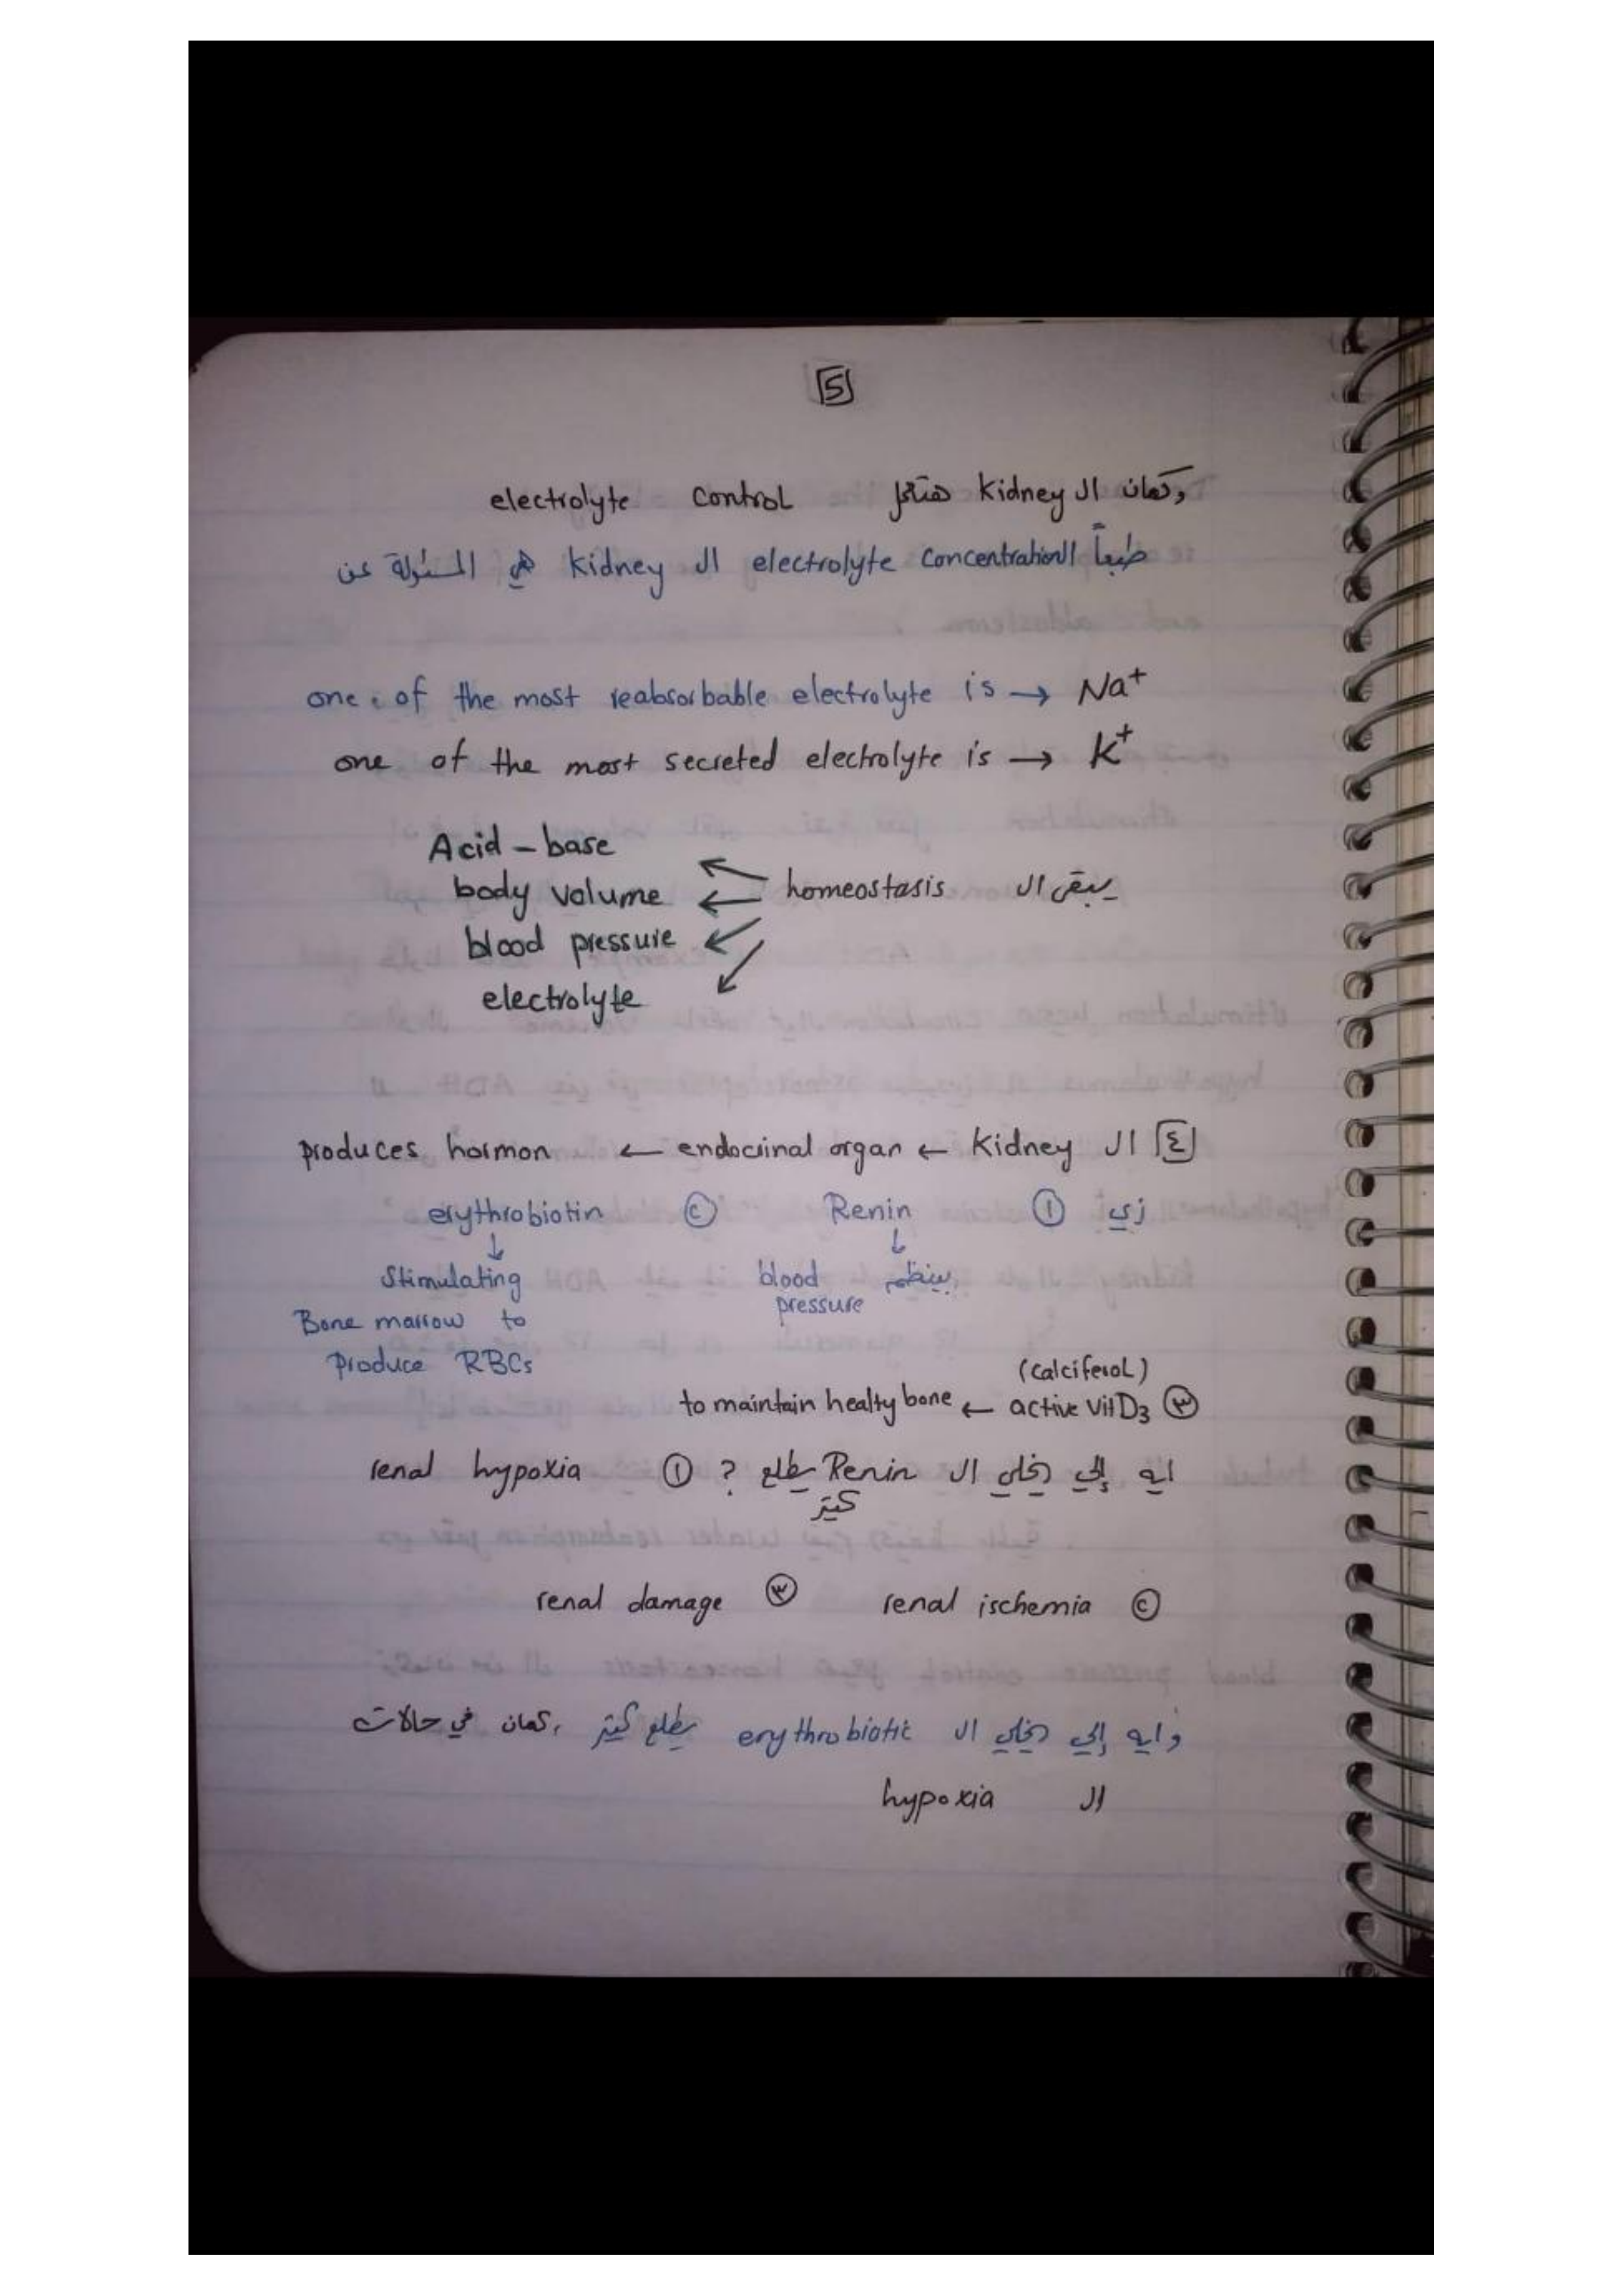 5
وكمان ال kidney هتعمل electrolyte control
طبعاً ال electrolyte concentration ال kidney هي المسئولة عن
one of the most reabsorbable electrolyte is → Na+
one of the most secreted electrolyte is → K+
يبقى ال homeostasis
Acid - base
body volume
blood pressure
electrolyte
[٤] ال kidney ← endocrinal organ ← produces hormon
زي ① Renin ② erythrobiotin
↓ ↓
بينظم blood pressure
Stimulating
Bone marrow to
produce RBCs
(calciferol)
③ active Vit D3 ← to maintain healty bone
ايه إلي يخلي ال Renin يطلع ? ① renal hypoxia
كتير
② renal ischemia ③ renal damage
وايه إلي يخلي ال erythrobiotic يطلع كتير ، كمان في حالات
ال hypoxia